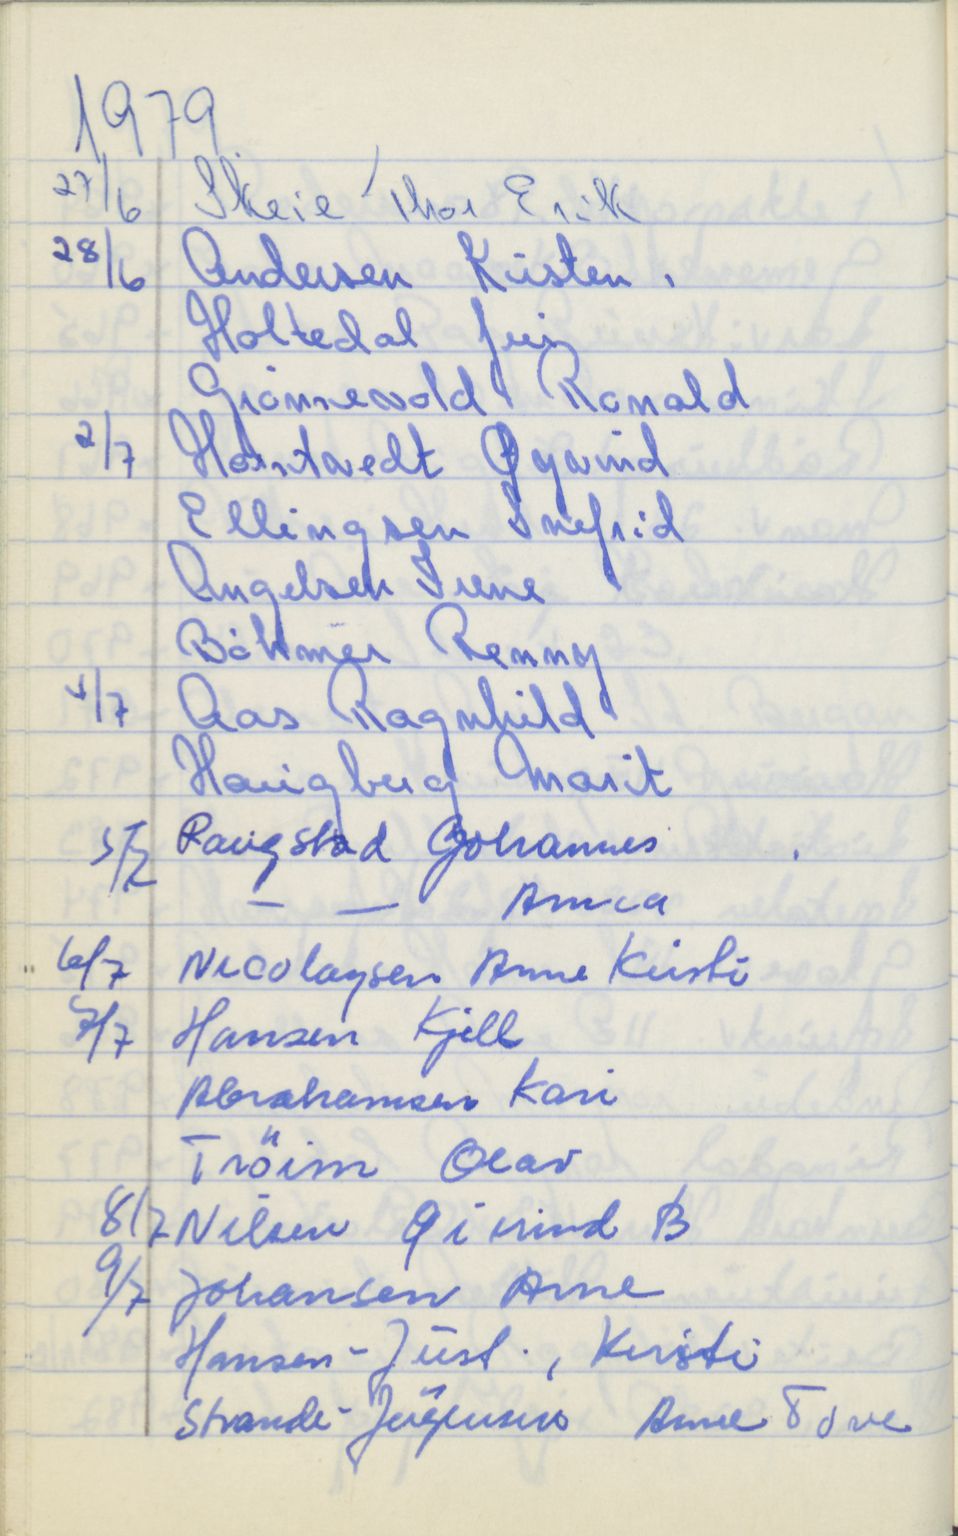 1979
27/6 Skeie Thor Erik
28/6 Andersen Kirsten.
Holtedal Juij
Grönnevold Ronald
2/7 Hårstvedt Øyvind
Ellingsen Ingfrid
Angelsen Irene
Böhmer Renny
4/7 Aas Ragnhild
Haugberg Marit
5/7 Raugstad Johannes
— — Anna
6/7 Nicolaysen Anne Kirsti
7/7 Hansen Kjell
Abrahamsen Kari
Tröim Olav
8/7 Nilsen Øivind B
9/7 Johansen Arne
Hansen-Jüst., Kirsti
Strande-Jörgensen Anne Tove